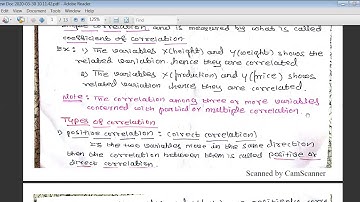 New Doc 2020-03-30 10.11.42.pdf - Adobe Reader
and is measured by what is called
coefficient of correlation
Ex: 1) The variables X(height) and Y(weight) shows the
related variation hence they are correlated
2) The variables X(production) and Y(price) shows
related variation hence they are correlated.
Note: The correlation among three or more variables
concerned with partial or multiple correlation.
Types of correlation
1) positive correlation: (Direct correlation)
If the two variables move in the same direction
then the correlation between them is called positive or
direct correlation.
Scanned by CamScanner